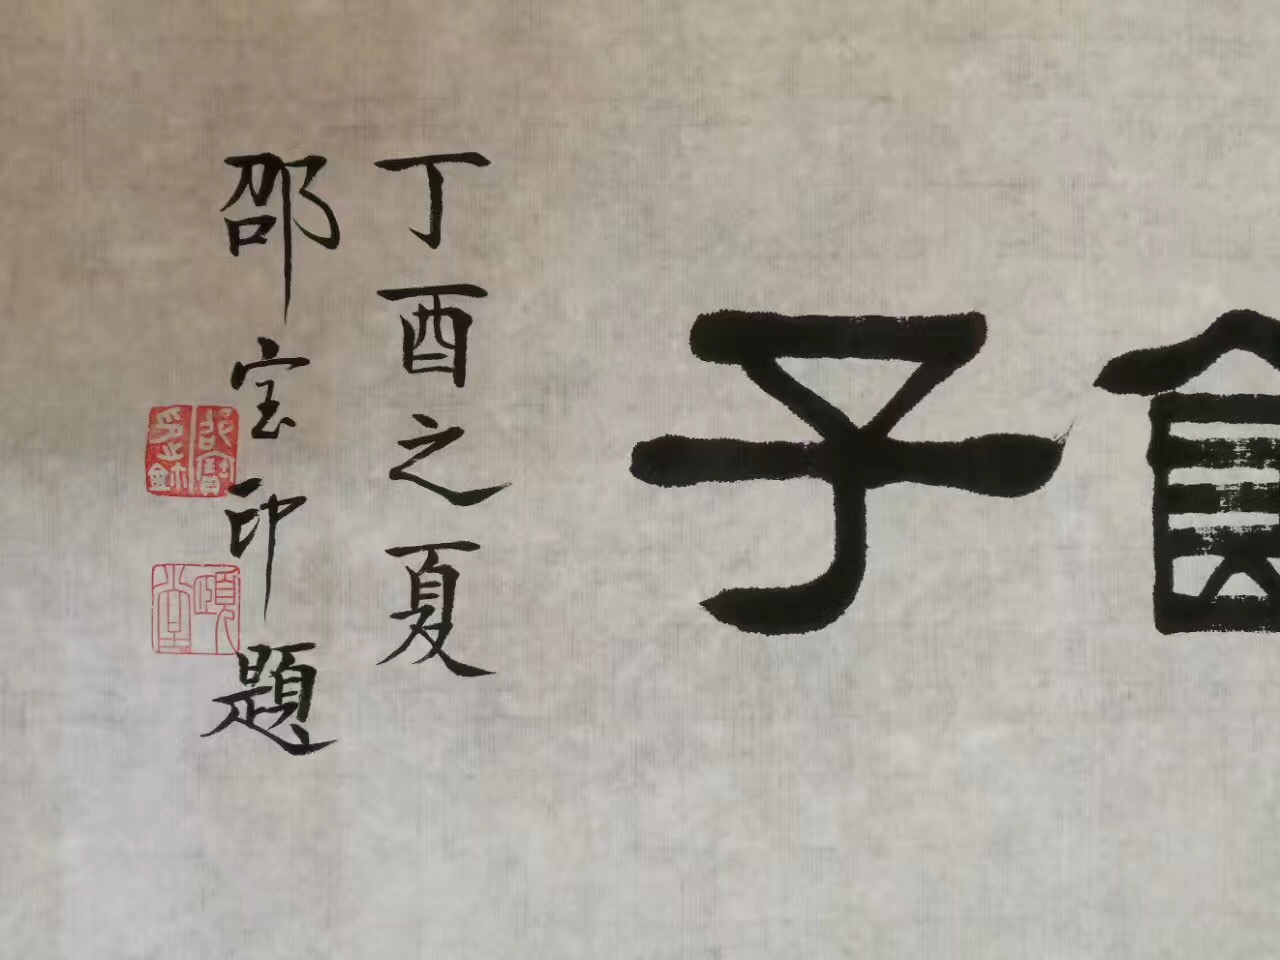 子
丁酉之夏
邵宝印題